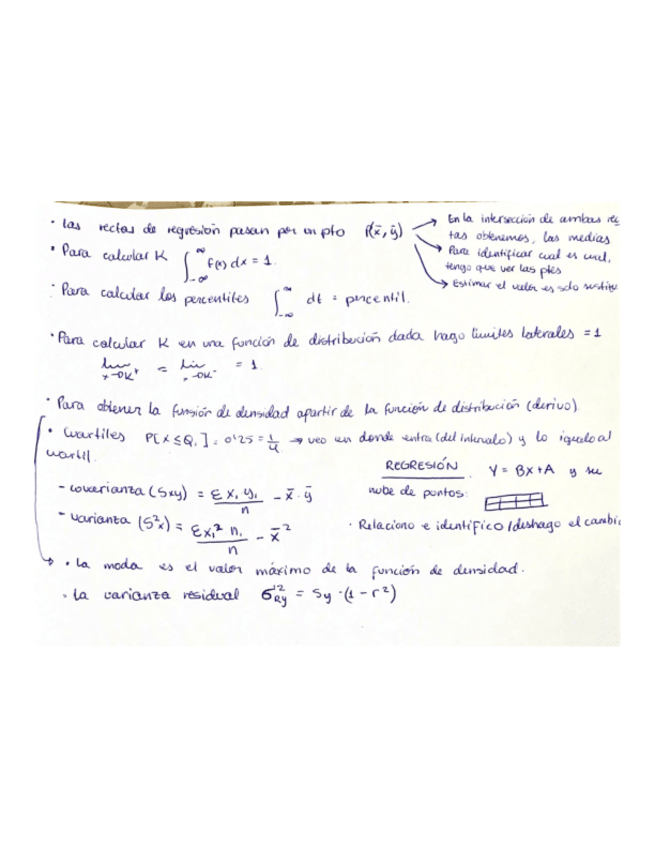 · Las rectas de regresión pasan por un pto P(x̄, ȳ) → En la intersección de ambas rec
tas obtenemos, las medias
→ Para identificar cual es cual,
tengo que ver las ptes
→ Estimar el valor es solo sustitu
· Para calcular K ∫_{-∞}^{∞} f(x) dx = 1.
· Para calcular los percentiles ∫_{-∞}^{∞} dt = percentil.
· Para calcular K en una función de distribución dada hago limites laterales = 1
lim x→0K⁺ = lim x→0K⁻ = 1
· Para obtener la función de densidad apartir de la función de distribución (derivo).
· Cuartiles P[X ≤ Q₁] = 0'25 = 1/4 → veo en donde entra (del intervalo) y lo igualo al
cuartil.
REGRESIÓN Y = BX+A y su
nube de puntos:
- covarianza (Sxy) = Σ xᵢ yᵢ / n - x̄ · ȳ
- varianza (S²x) = Σ xᵢ² nᵢ / n - x̄²
· Relaciono e identifico/deshago el cambio
→ · La moda es el valor máximo de la función de densidad.
· La varianza residual σ²_Ry = Sy · (1 - r²)